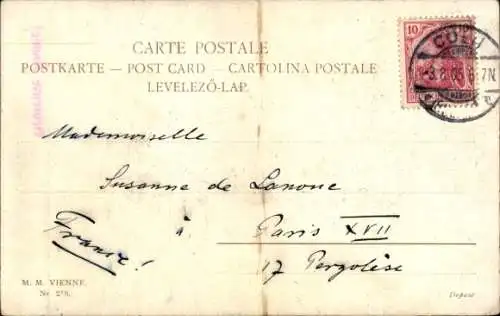 CARTE POSTALE
POSTKARTE — POST CARD — CARTOLINA POSTALE
LEVELEZŐ-LAP.
10
CÖLN
Mademoiselle
Susanne de Lanoue
à. Paris XVII
France!
17 Pergolèse
M. M. VIENNE.
Nr.
Déposé